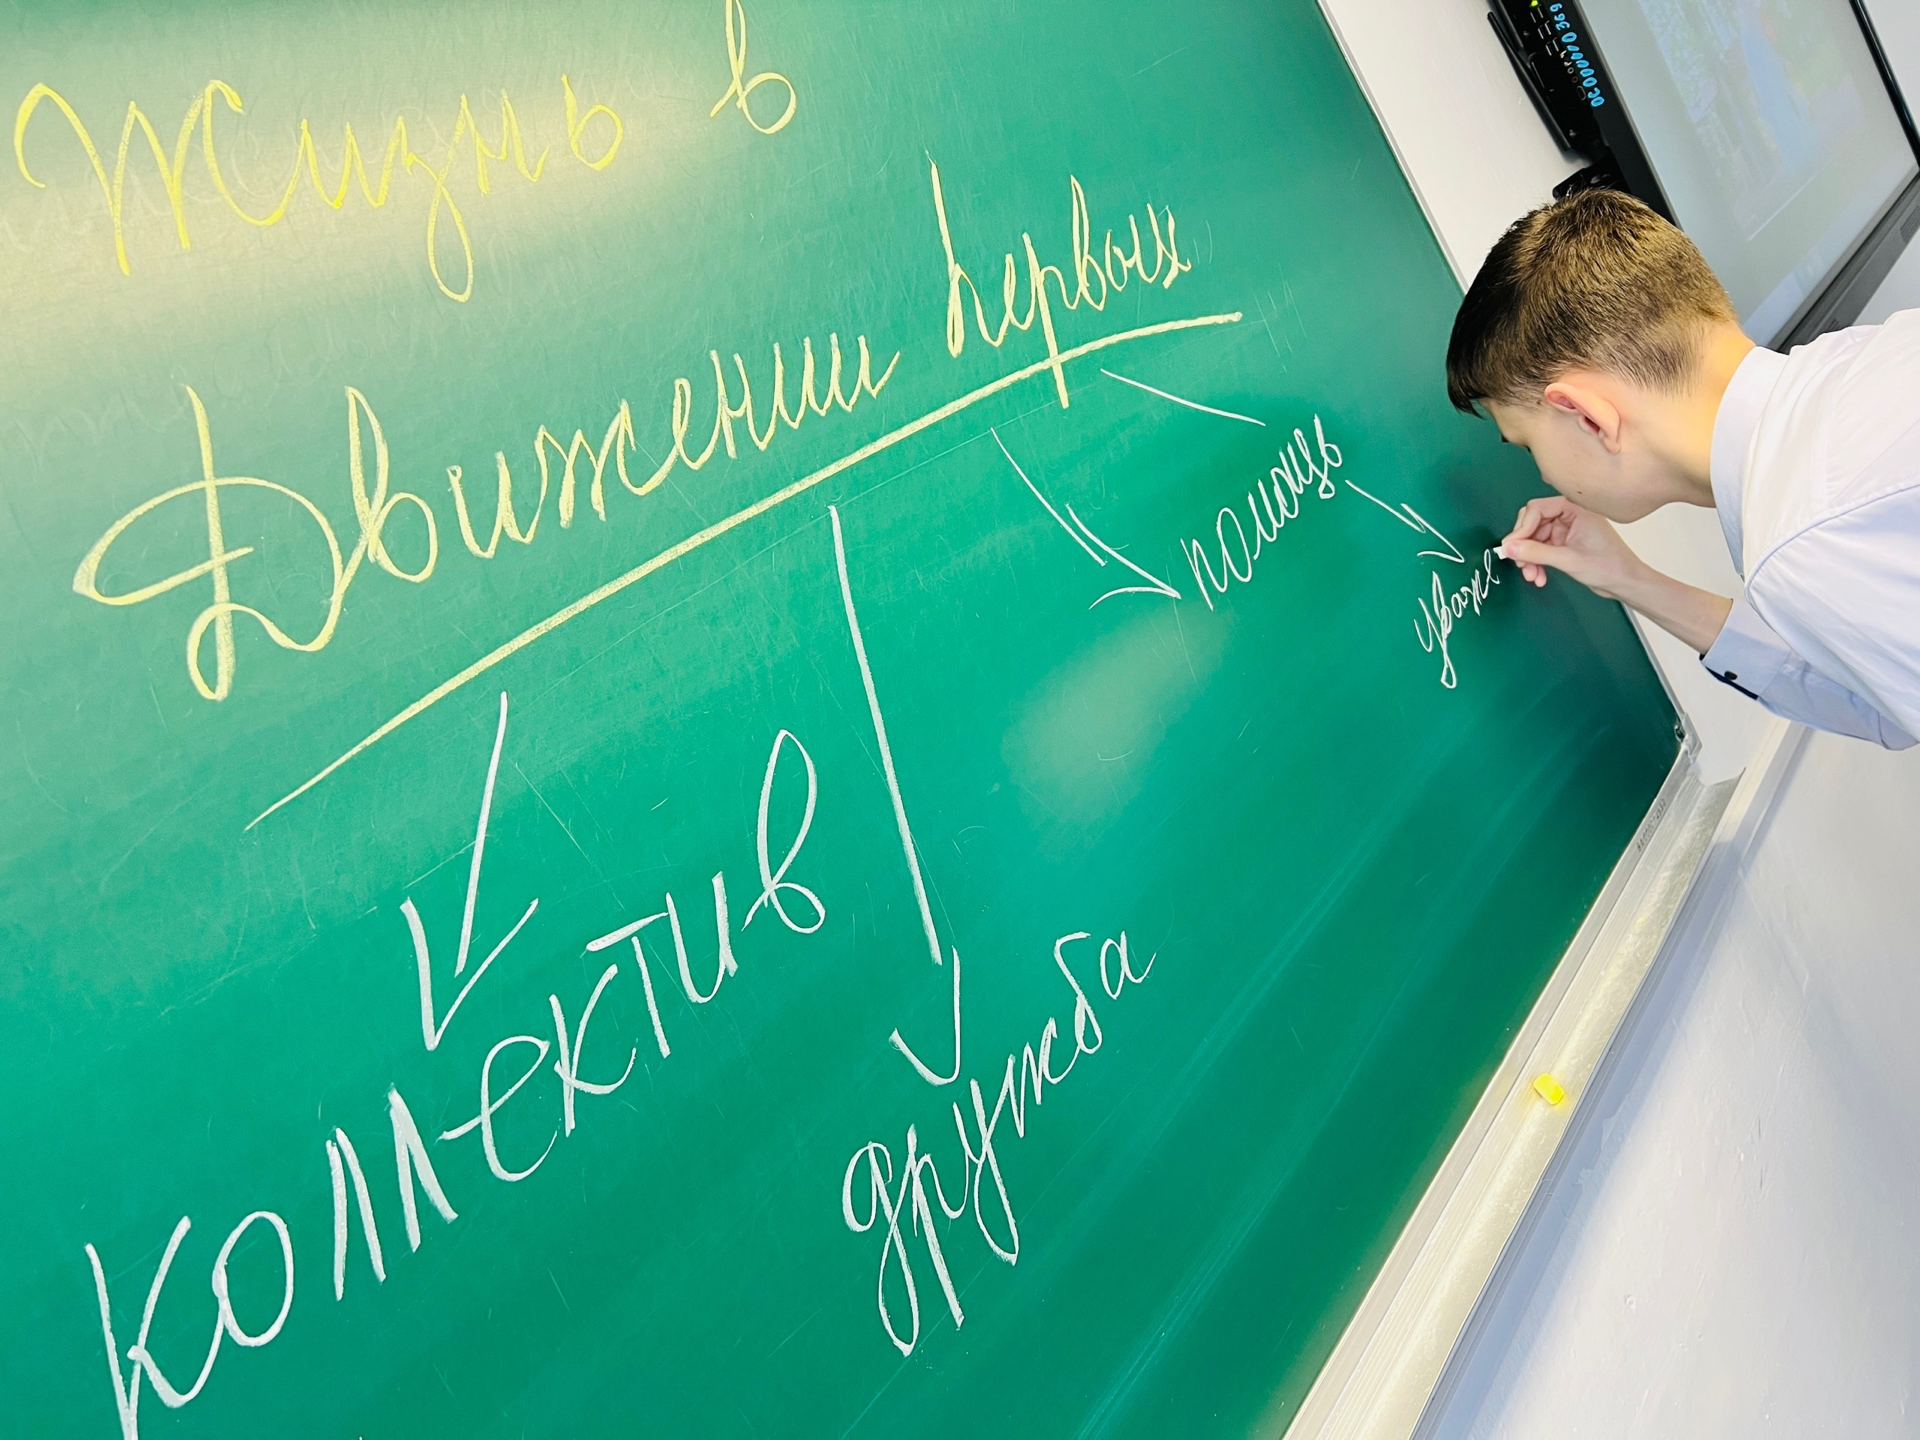 Жизнь в
Движении первых
коллектив
дружба
помощь
уваже